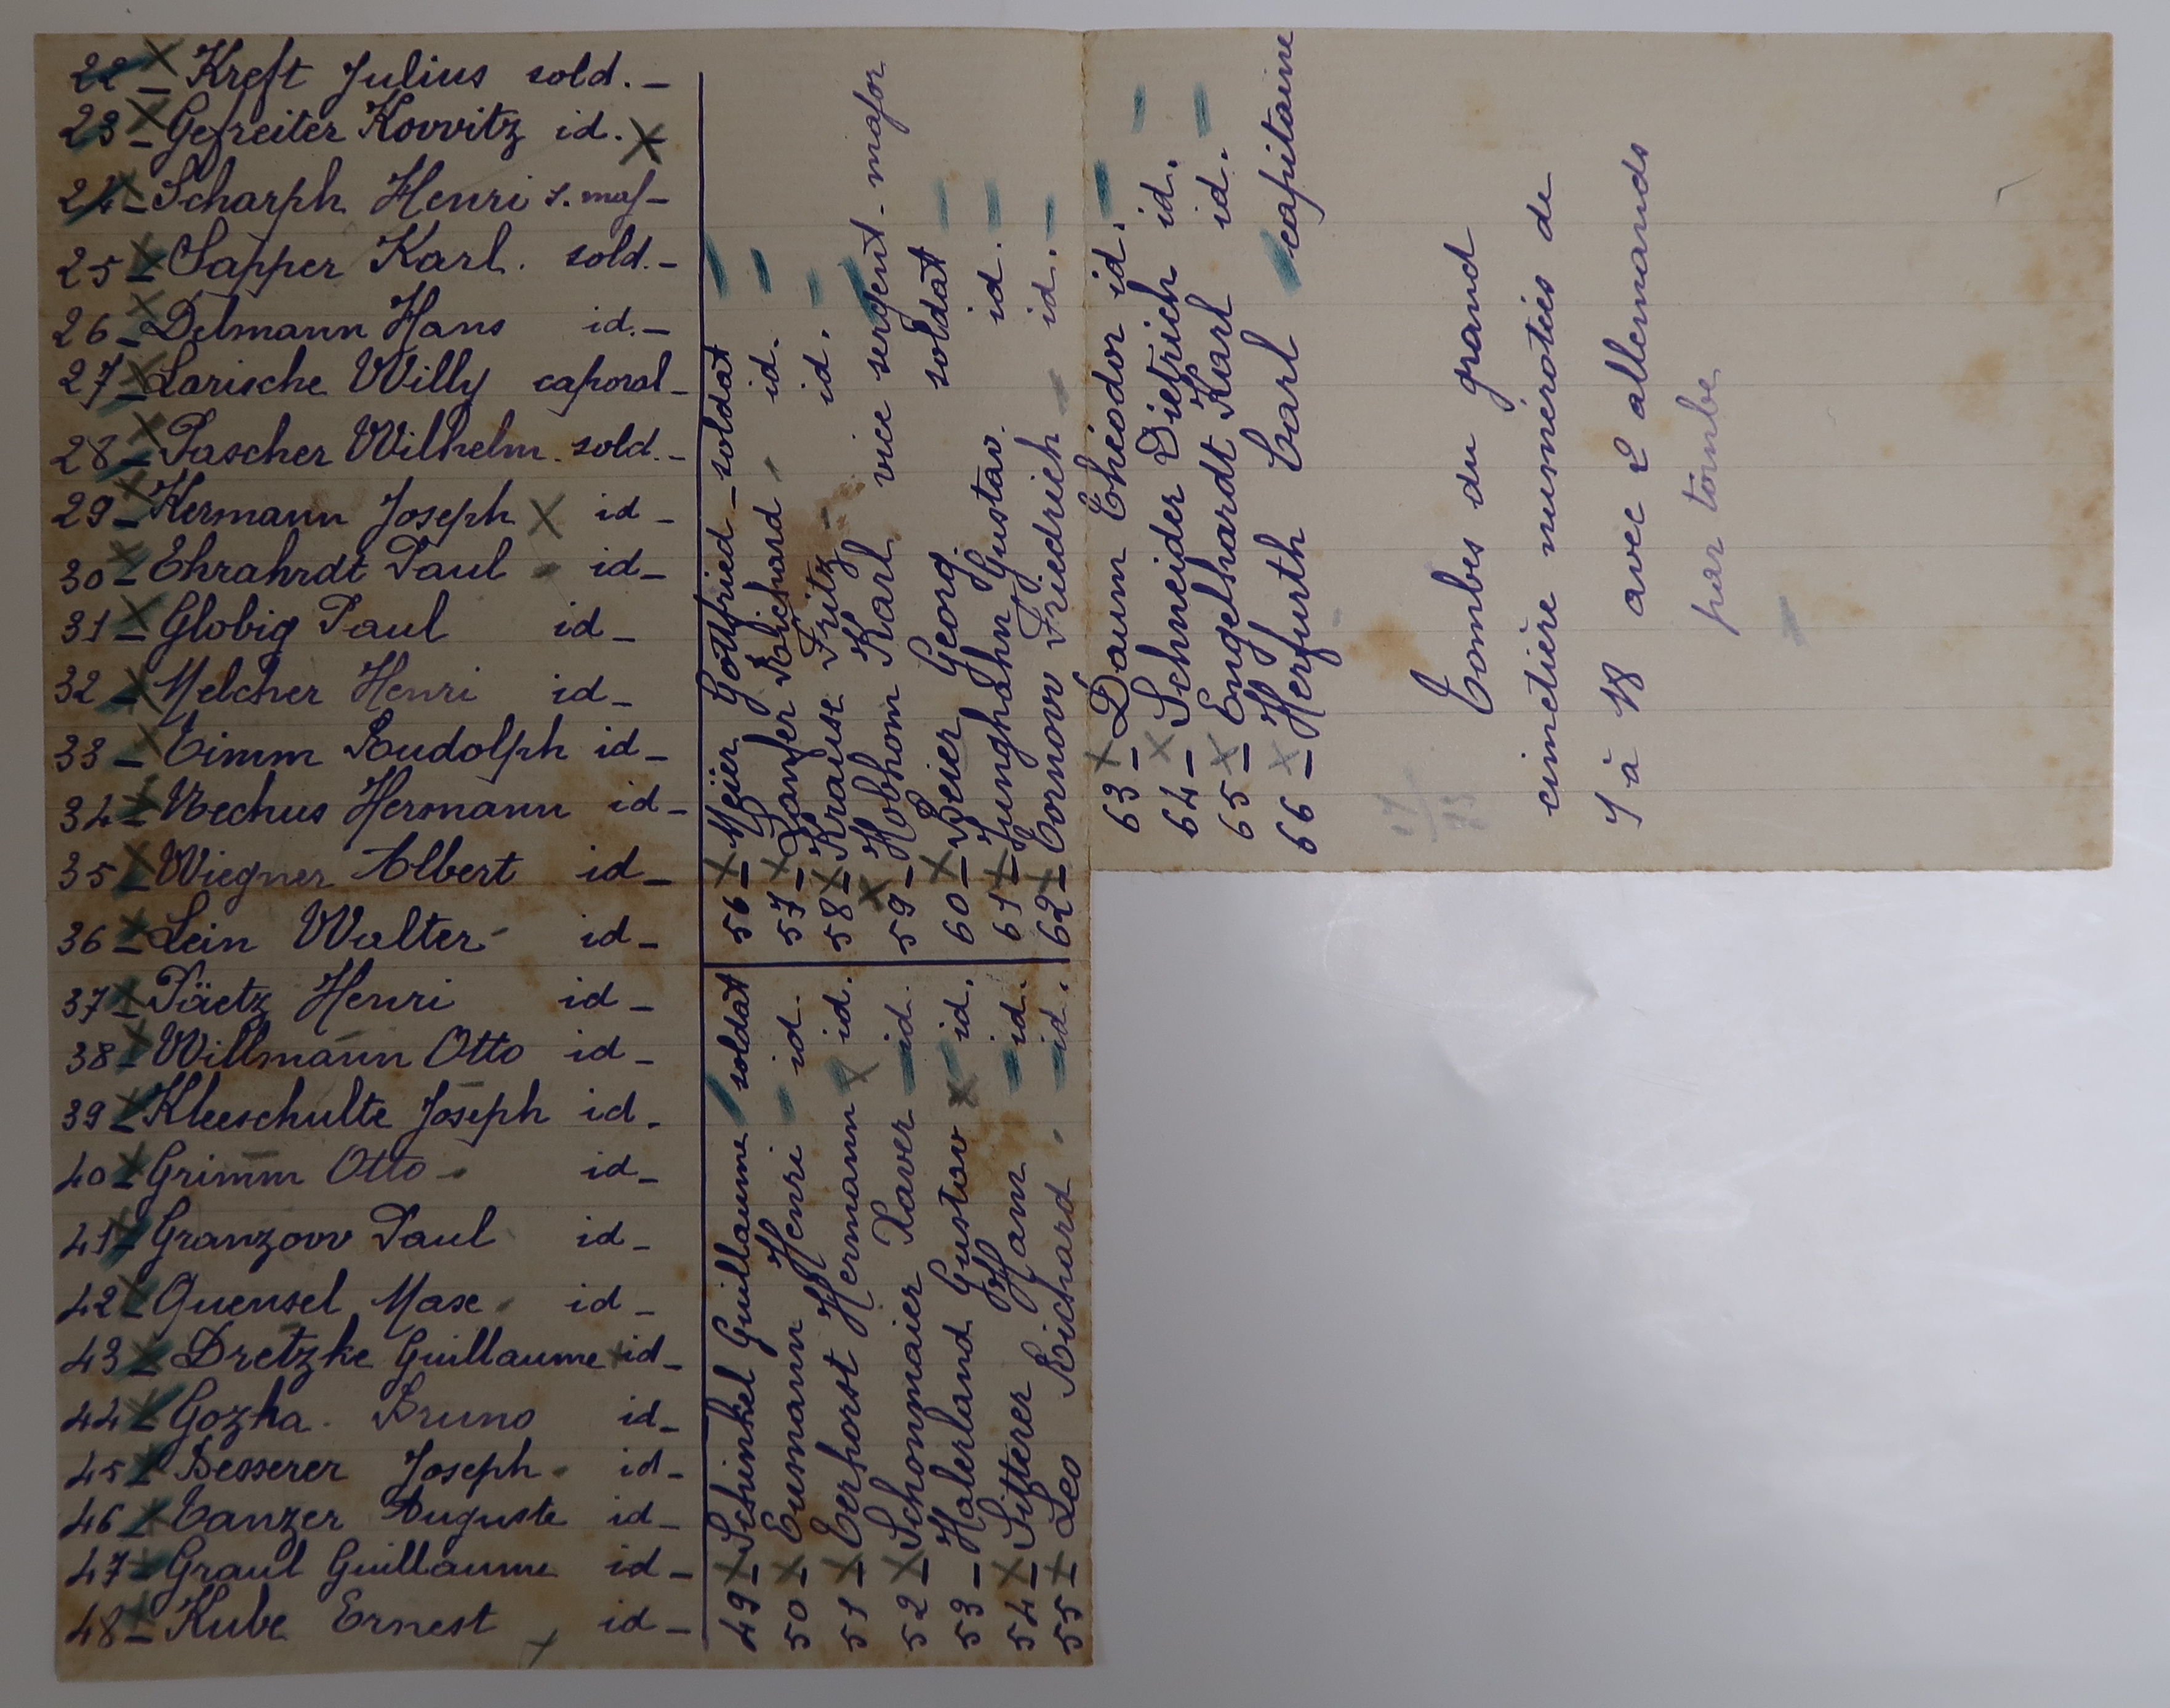 22 - Kreft Julius sold. -
23 - Gefreiter Kovvitz id. -
24 - Scharph Henri s. maj -
25 - Sapper Karl. sold. -
26 - Delmann Hans id. -
27 - Larische Willy caporal -
28 - Pascher Wilhelm. sold. -
29 - Kermann Joseph X id -
30 - Ehrahrdt Paul id -
31 - Globig Paul id -
32 - Melcher Henri id -
33 - Timm Rudolph id -
34 - Vechus Hermann id -
35 - Wiegner Albert id -
36 - Lein Walter id -
37 - Päetz Henri id -
38 - Willmann Otto id -
39 - Kleeschulte Joseph id -
40 - Grimm Otto id -
41 - Granzovv Paul id -
42 - Quensel Max id -
43 - Dretzke Guillaume id -
44 - Gozha. Bruno id -
45 - Besserer Joseph id -
46 - Tanzer Auguste id -
47 - Graul Guillaume id -
48 - Kube Ernest id -
49 - Schinkel Guillaume soldat
50 - Eumann Henri id.
51 - Terhorst Hermann id.
52 - Schonmaier Xaver id.
53 - Halerland Gustav id.
54 - Sitterer Ham id.
55 - Leo Richard id.
56 - Meier Gottfried - soldat
57 - Richard id.
58 - Krause Fritz id.
59 - Hobhom Karl vice sergent-major
60 - Beier Georg. soldat
61 - Junghahn Gustav. id.
62 - Tornovv Friedrich id.
63 - Daum Théodor id.
64 - Schneider Dietrich id.
65 - Engelhardt Karl id.
66 - Herfurth Carl capitaine
Tombes du grand
cimetière numérotées de
1 à 18 avec 2 allemands
par tombe